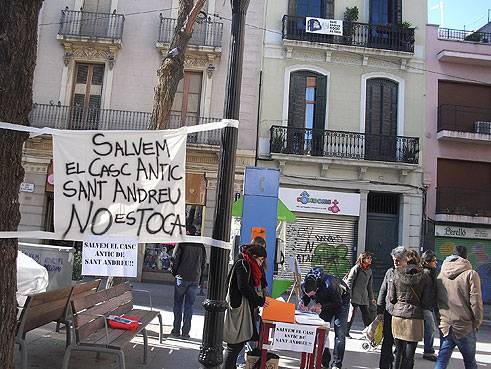 SALVEM
EL CASC ANTIC
SANT ANDREU
NO ES TOCA
SALVEM EL CASC
ANTIC DE
SANT ANDREU!!
SALVEM EL CASC
ANTIC DE
SANT ANDREU!!